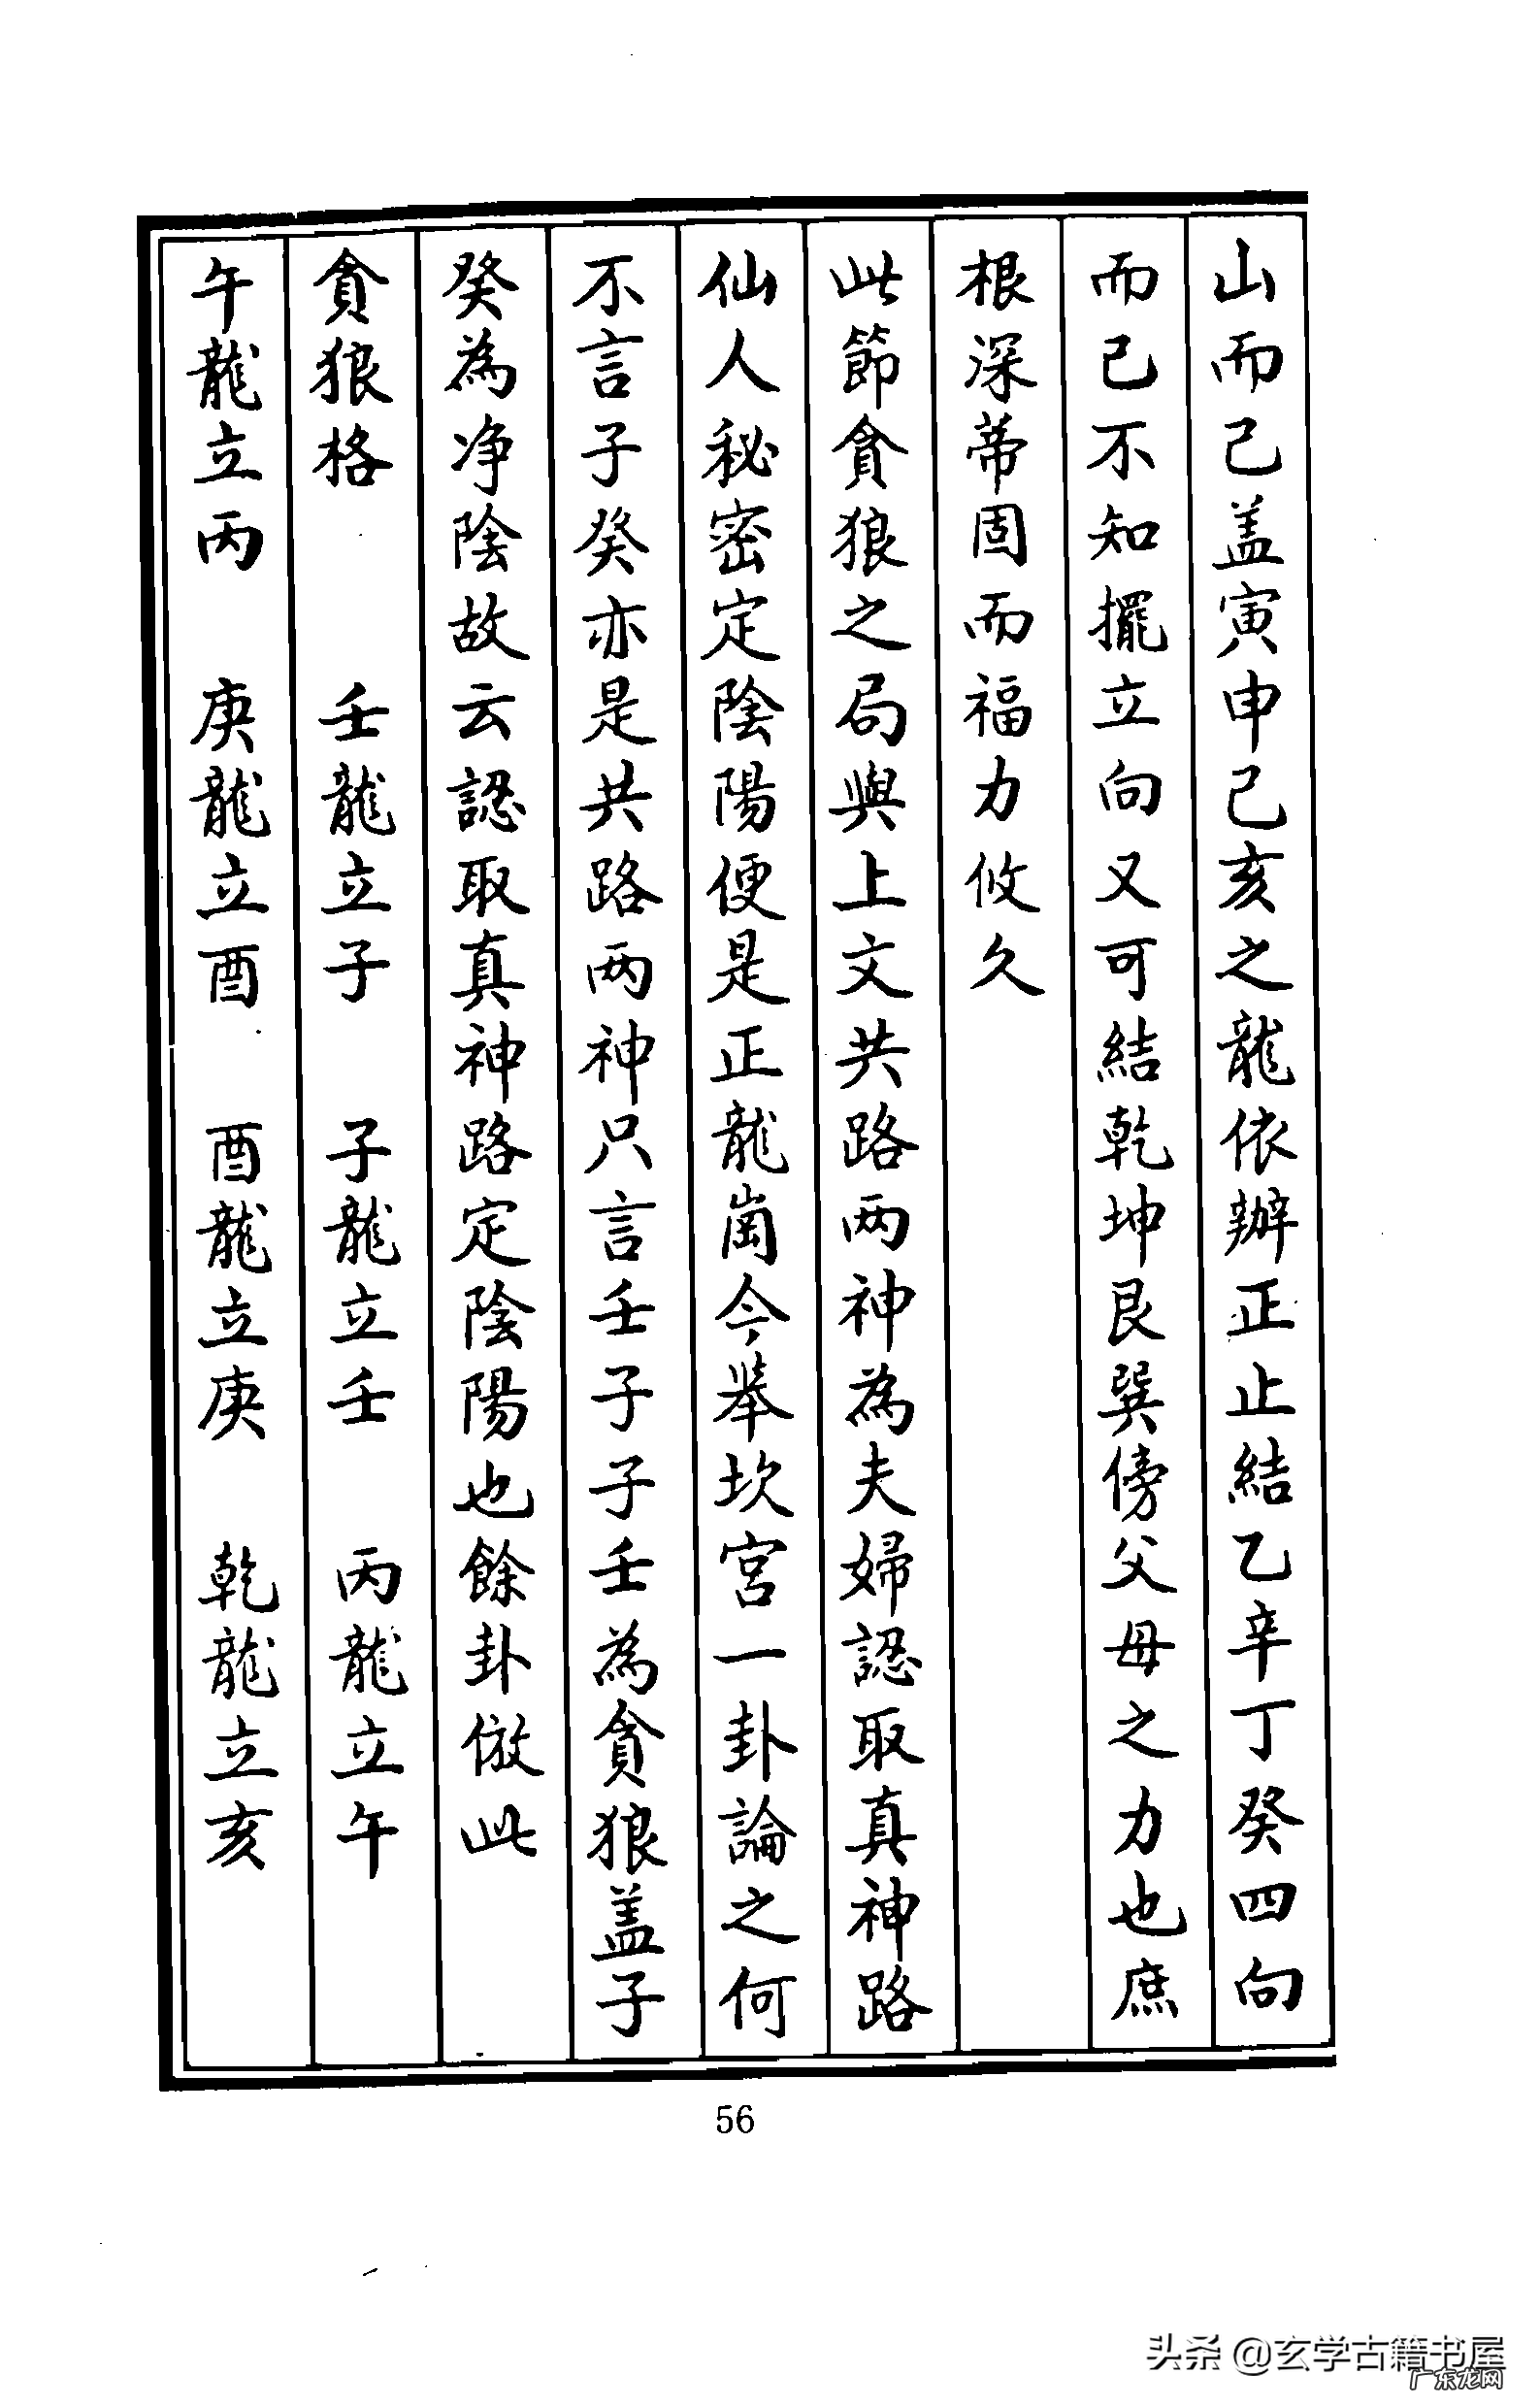 山而已盖寅申巳亥之龍依辦正止結乙辛丁癸四向
而已不知擺立向又可結乾坤艮巽傍父母之力也庶
根深蒂固而福力攸久
此節貪狼之局與上文共路两神為夫婦認取真神路
仙人秘密定陰陽便是正龍崗今舉坎宮一卦論之何
不言子癸亦是共路两神只言壬子子壬為貪狼盖子
癸為净陰故云認取真神路定陰陽也餘卦倣此
貪狼格　壬龍立子　子龍立壬　丙龍立午
午龍立丙　庚龍立酉　酉龍立庚　乾龍立亥
56
头条 @玄学古籍书屋
广东龙网